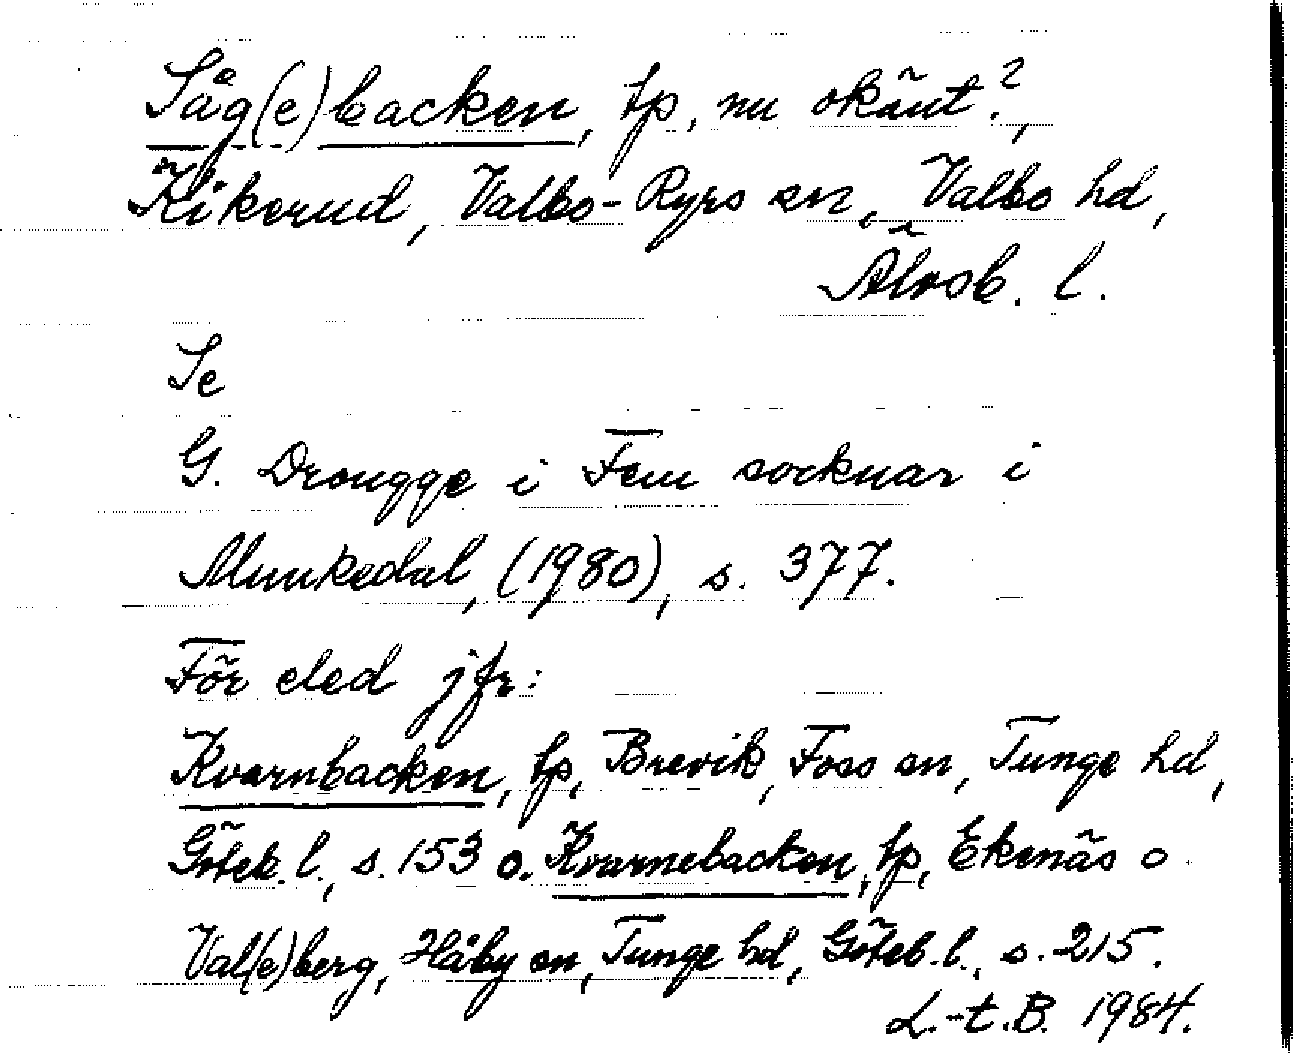 Såg(e)backen, tp, nu okänt?,
Kikerud, Valbo-Ryrs sn, Valbo hd,
Älvsb. l.
Se
G. Drougge i Fem socknar i
Munkedal, (1980), s. 377.
För eled jfr:
Kvarnbacken, tp, Brevik, Foss sn, Tunge hd,
Göteb. l., s. 153 o. Kvarnebacken, tp, Ekenäs o
Val(e)berg, Håby sn, Tunge hd, Göteb. l., s. 215.
L.-t.B. 1984.